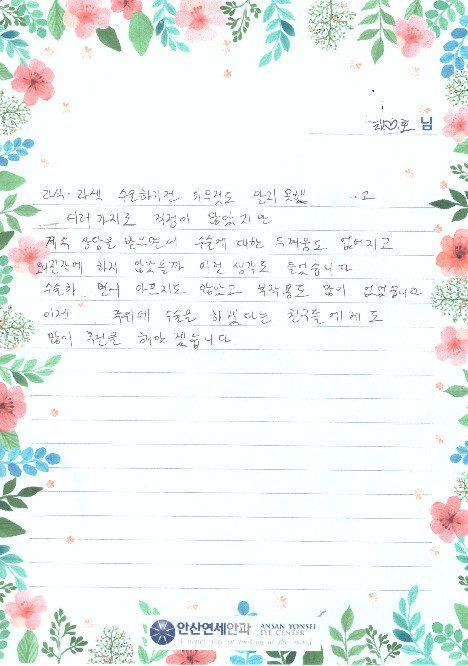 최♡호 님
라식·라섹 수술하기전 아무것도 알지 못했 고
여러가지로 걱정이 많았지만
계속 상담을 받으면서 수술에 대한 두려움도 없어지고
왜진작에 하지 않았을까 이런 생각도 들었습니다
수술하 면서 아프지도 않았고 부작용도 많이 없었습니다
이제 주위에 수술을 하겠다는 친구들에게도
많이 추천을 해야 겠습니다
안산연세안과 ANSAN YONSEI EYE CENTER
A better way of looking at the world